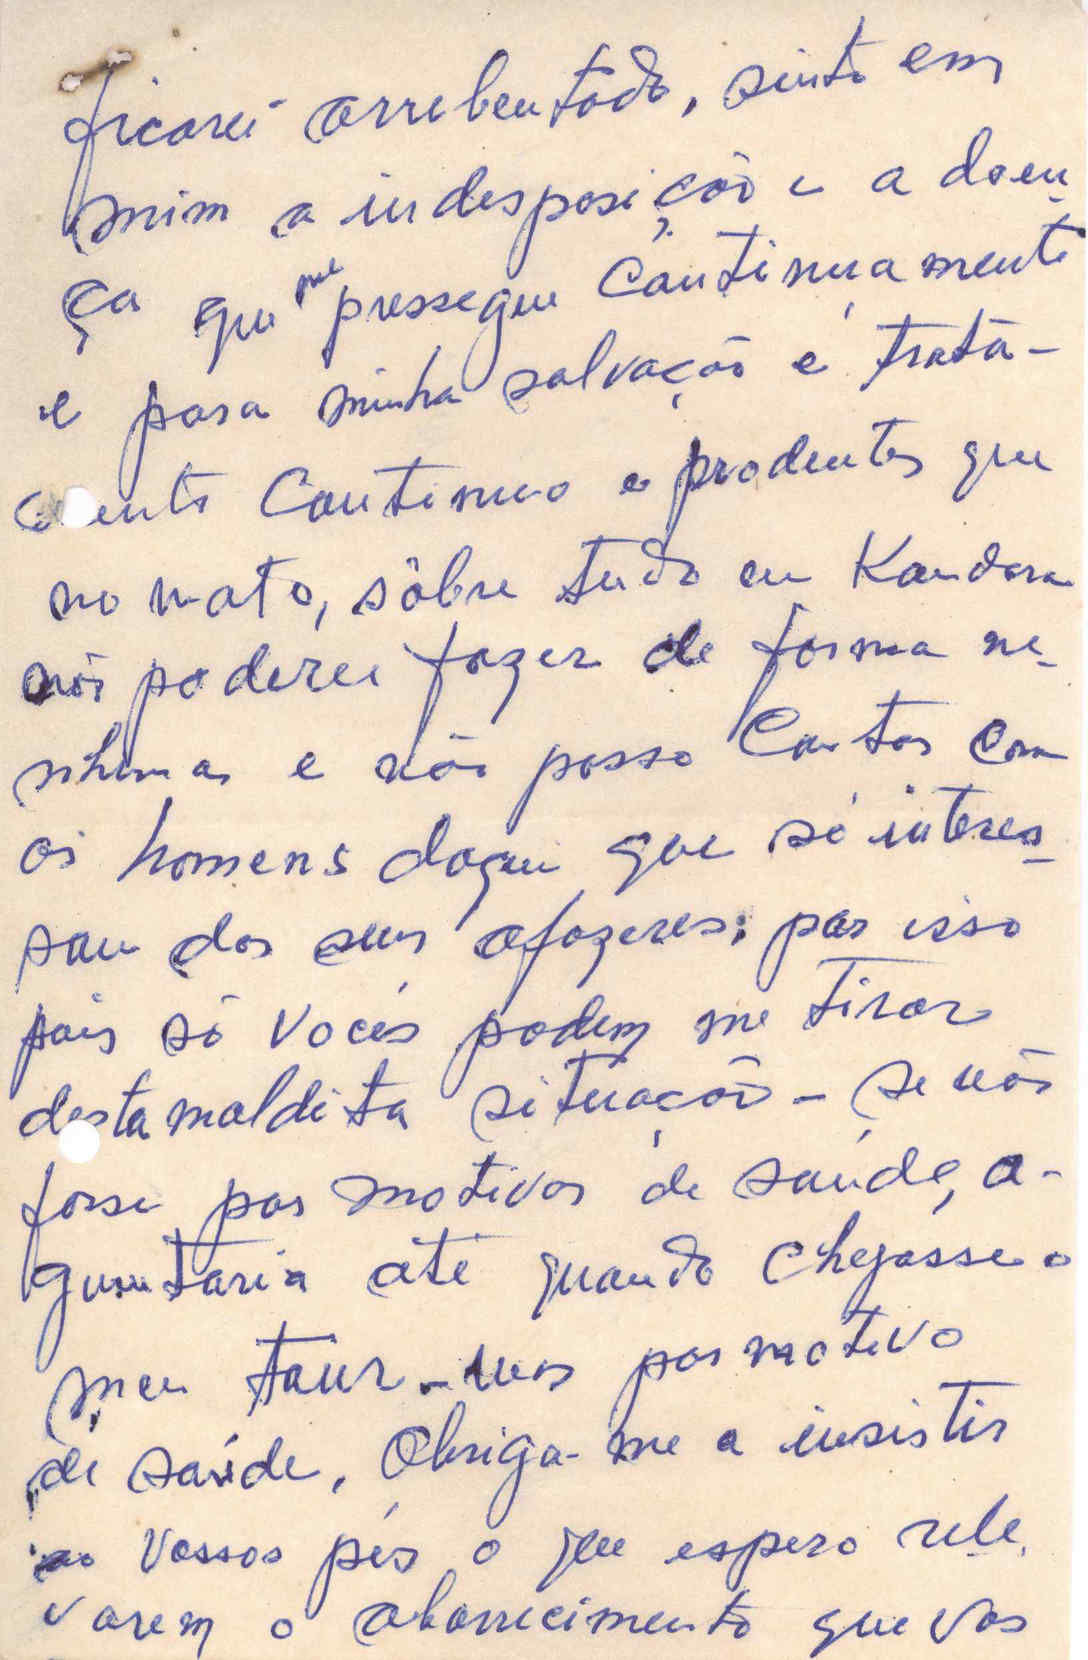 ficarei arrebentado, sinto em
mim a indesposição e a doen-
ça que me pressegue continuamente
e para minha salvação é trata-
mento continuo e prodentes que
no mato, sôbre tudo em Kandara
não poderei fazer de forma ne-
nhuma e não posso contar com
os homens daqui que só interes-
sam dos seus afazeres; por isso
pois só vocês podem me tirar
desta maldita situação - se não
fosse por motivos de saúde, a-
guentaria até quando chegasse o
meu tour - mas por motivo
de saúde, obriga-me a insistir
ao vossos pés o que espero rele-
varem o aborrecimento que vos